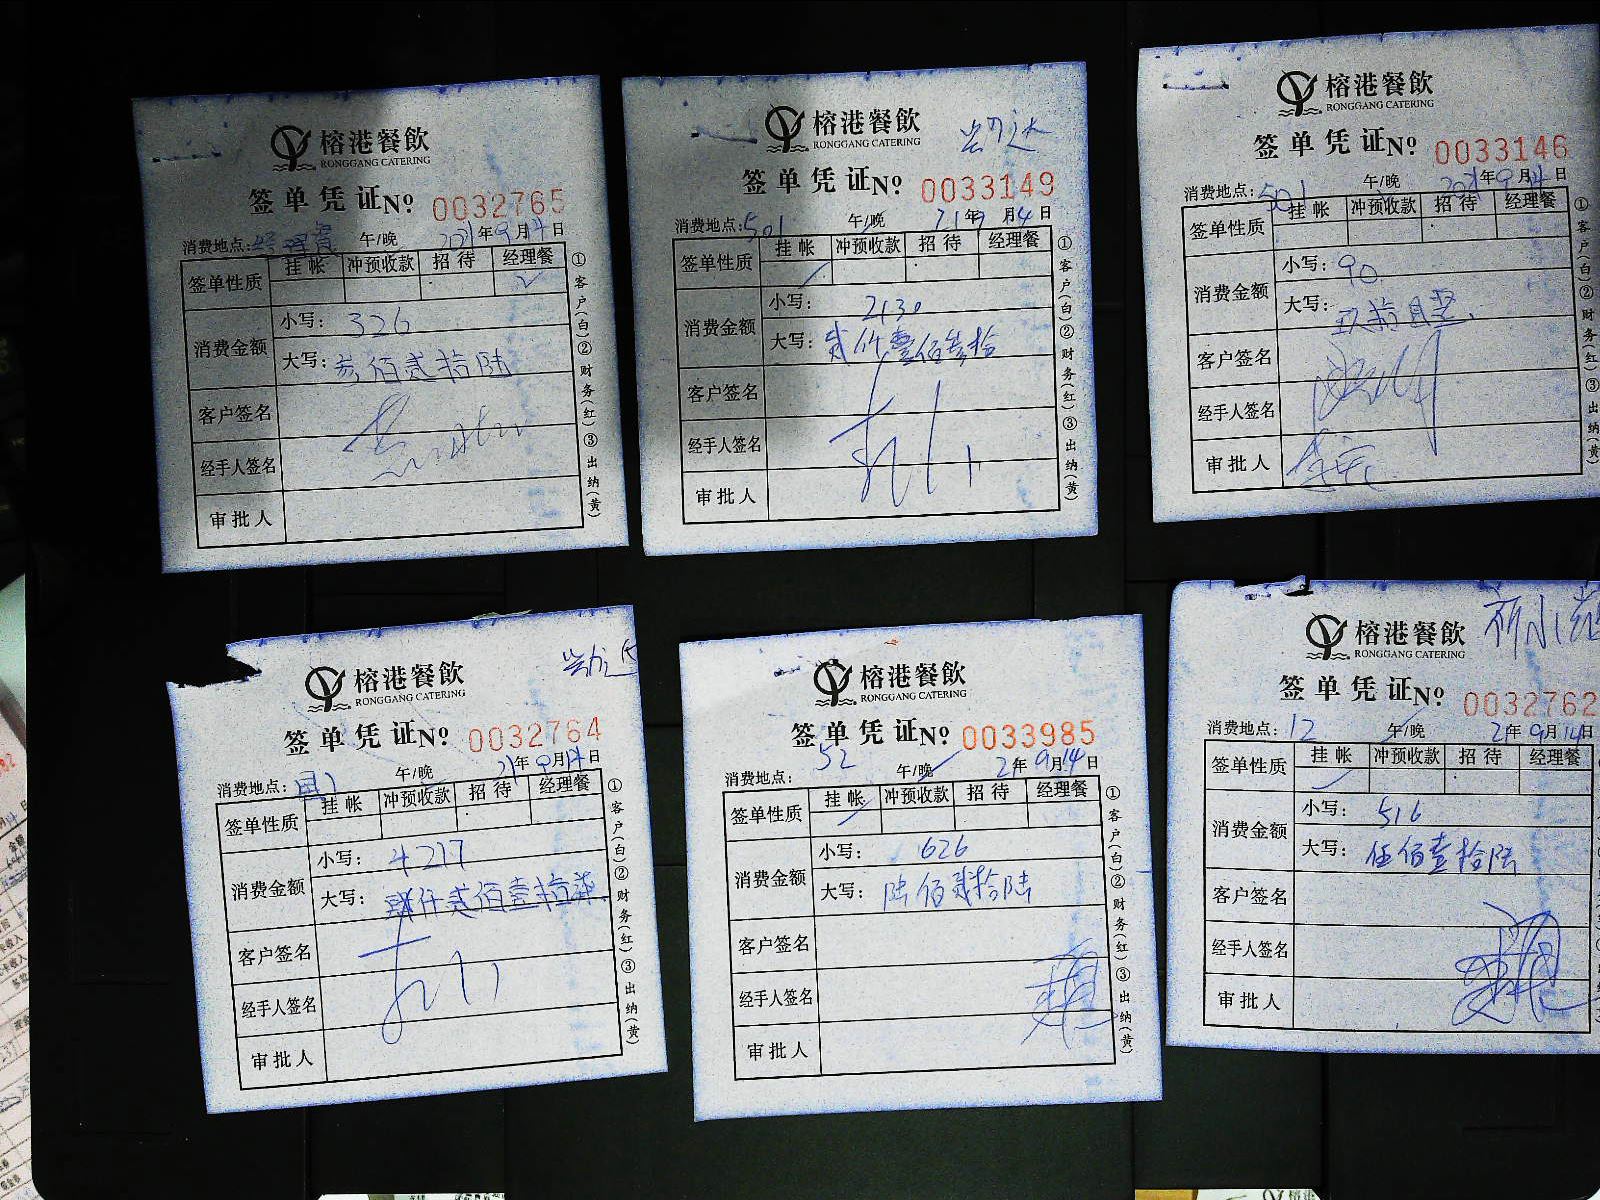 榕港餐飲
RONGGANG CATERING
签单凭证№ 0032765
消费地点: 午/晚 2021年9月14日
签单性质 挂帐 冲预收款 招待 经理餐
✓
消费金额 小写: 326
大写: 叁佰贰拾陆
客户签名
经手人签名
审批人
①客户(白)②财务(红)③出纳(黄)
榕港餐飲
RONGGANG CATERING
签单凭证№ 0033149
消费地点: 501 午/晚 21年9月14日
签单性质 挂帐 冲预收款 招待 经理餐
消费金额 小写: 2130
大写: 贰仟壹佰叁拾
客户签名
经手人签名
审批人
①客户(白)②财务(红)③出纳(黄)
榕港餐飲
RONGGANG CATERING
签单凭证№ 0033146
消费地点: 501 午/晚 2021年9月14日
签单性质 挂帐 冲预收款 招待 经理餐
消费金额 小写: 90
大写: 玖拾
客户签名
经手人签名
审批人
①客户(白)②财务(红)③出纳(黄)
榕港餐飲
RONGGANG CATERING
签单凭证№ 0032764
消费地点: 午/晚 21年9月14日
签单性质 挂帐 冲预收款 招待 经理餐
消费金额 小写: 4217
大写: 肆仟贰佰壹拾柒
客户签名
经手人签名
审批人
①客户(白)②财务(红)③出纳(黄)
榕港餐飲
RONGGANG CATERING
签单凭证№ 0033985
消费地点: 52 午/晚 21年9月14日
签单性质 挂帐 冲预收款 招待 经理餐
消费金额 小写: 626
大写: 陆佰贰拾陆
客户签名
经手人签名
审批人
①客户(白)②财务(红)③出纳(黄)
榕港餐飲
RONGGANG CATERING
签单凭证№ 0032762
消费地点: 12 午/晚 21年9月14日
签单性质 挂帐 冲预收款 招待 经理餐
消费金额 小写: 516
大写: 伍佰壹拾陆
客户签名
经手人签名
审批人